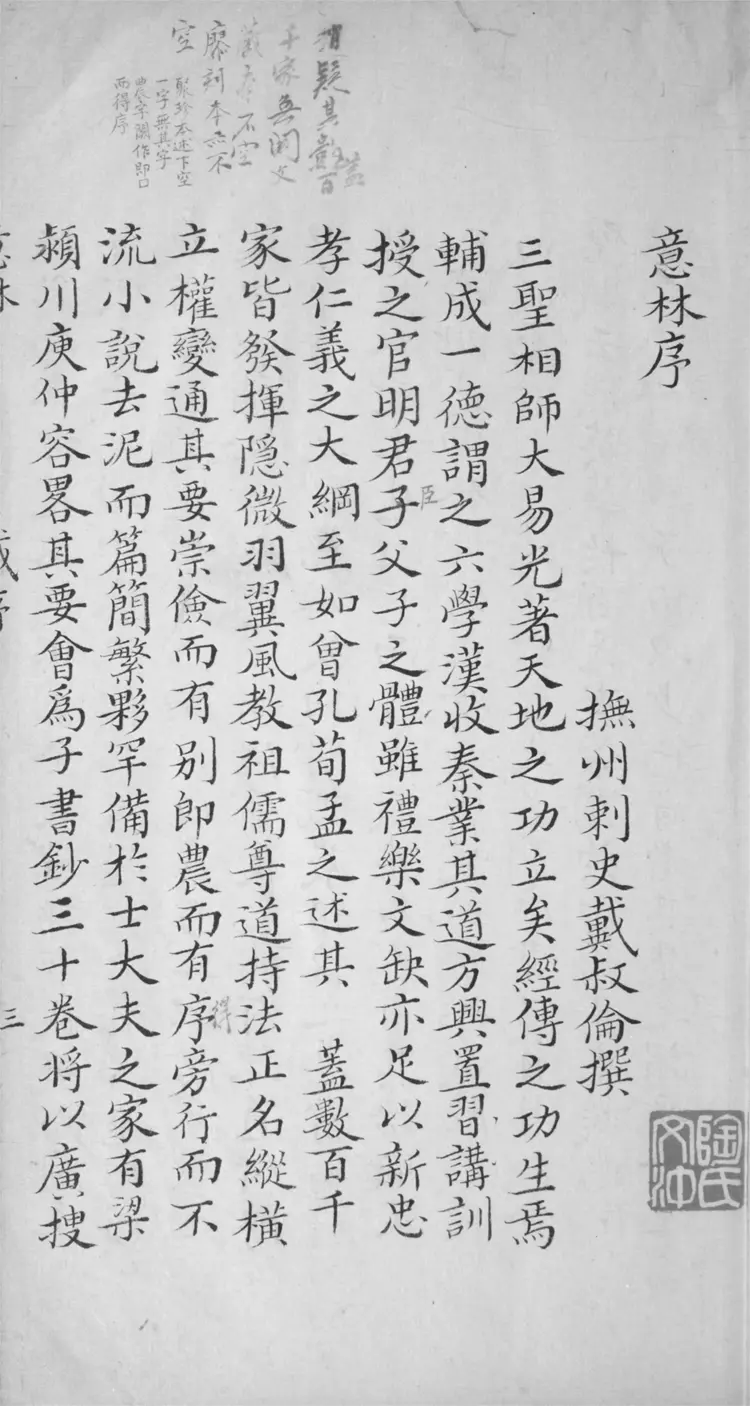 意林序
撫州刺史戴叔倫撰
三聖相師大易光著天地之功立矣經傳之功生焉
輔成一德謂之六學漢收秦業其道方興置習講訓
授之官明君子父子之體雖禮樂文缺亦足以新忠
臣
孝仁義之大綱至如曾孔荀孟之述其 蓋數百千
家皆發揮隱微羽翼風教祖儒尊道持法正名縱橫
立權變通其要崇儉而有別即農而有序旁行而不
得
流小說去泥而篇簡繁夥罕備於士大夫之家有梁
潁川庾仲容畧其要會爲子書鈔三十卷將以廣搜
疑其蓋百
千家無闕文
不空
廖刻本亦不
空
聚珍本述下空
一字無其字
農字闕作即口
而得序
意林
戴序
三
陶氏